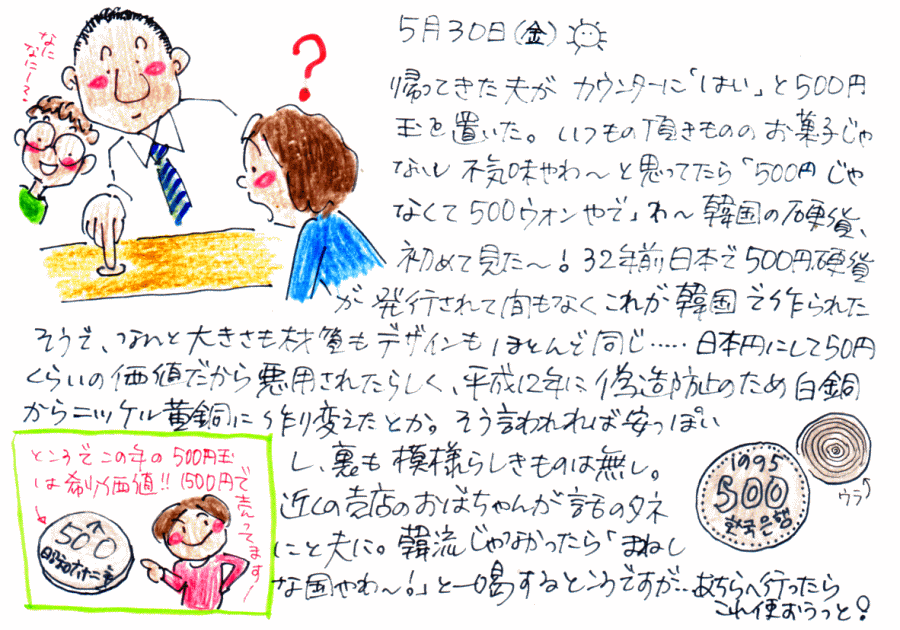 5月30日(金)
なに
なに〜?
?
帰ってきた夫が カウンターに「はい」と500円
玉を置いた。いつもの頂きもののお菓子じゃ
ないし 不気味やわ〜と思ってたら「500円じゃ
なくて500ウォンやで」わ〜韓国の硬貨、
初めて見た〜!32年前日本で500円硬貨
が発行されて間もなくこれが韓国で作られた
そうで、なんと大きさも材質もデザインもほとんど同じ……日本円にして50円
くらいの価値だから悪用されたらしく、平成12年に偽造防止のため白銅
からニッケル黄銅に作り変えたとか。そう言われれば安っぽい
し、裏も模様らしきものは無し。
近くの売店のおばちゃんが話のタネ
にと夫に。韓流じゃなかったら「まねし
な国やわ〜!」と一喝するところですが…あちらへ行ったら
これ使おうっと!
ところでこの年の500円玉
は希少価値!!1500円で
売ってます!
500
昭和六十二年
1995
500
한국은행
ウラ